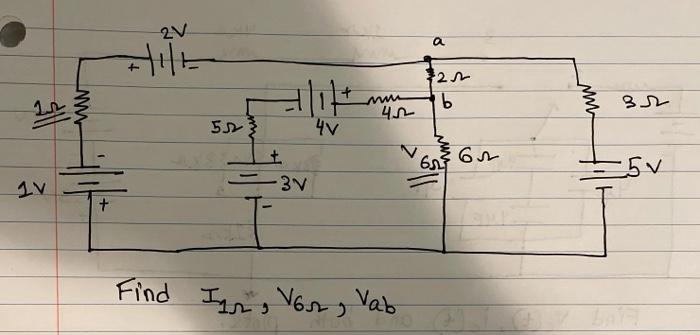 2V
a
+ -
2Ω
1Ω
- +
4V
4Ω
b
3Ω
5Ω
-
+
V6Ω
6Ω
5V
1V
3V
+
-
Find I1Ω, V6Ω, Vab